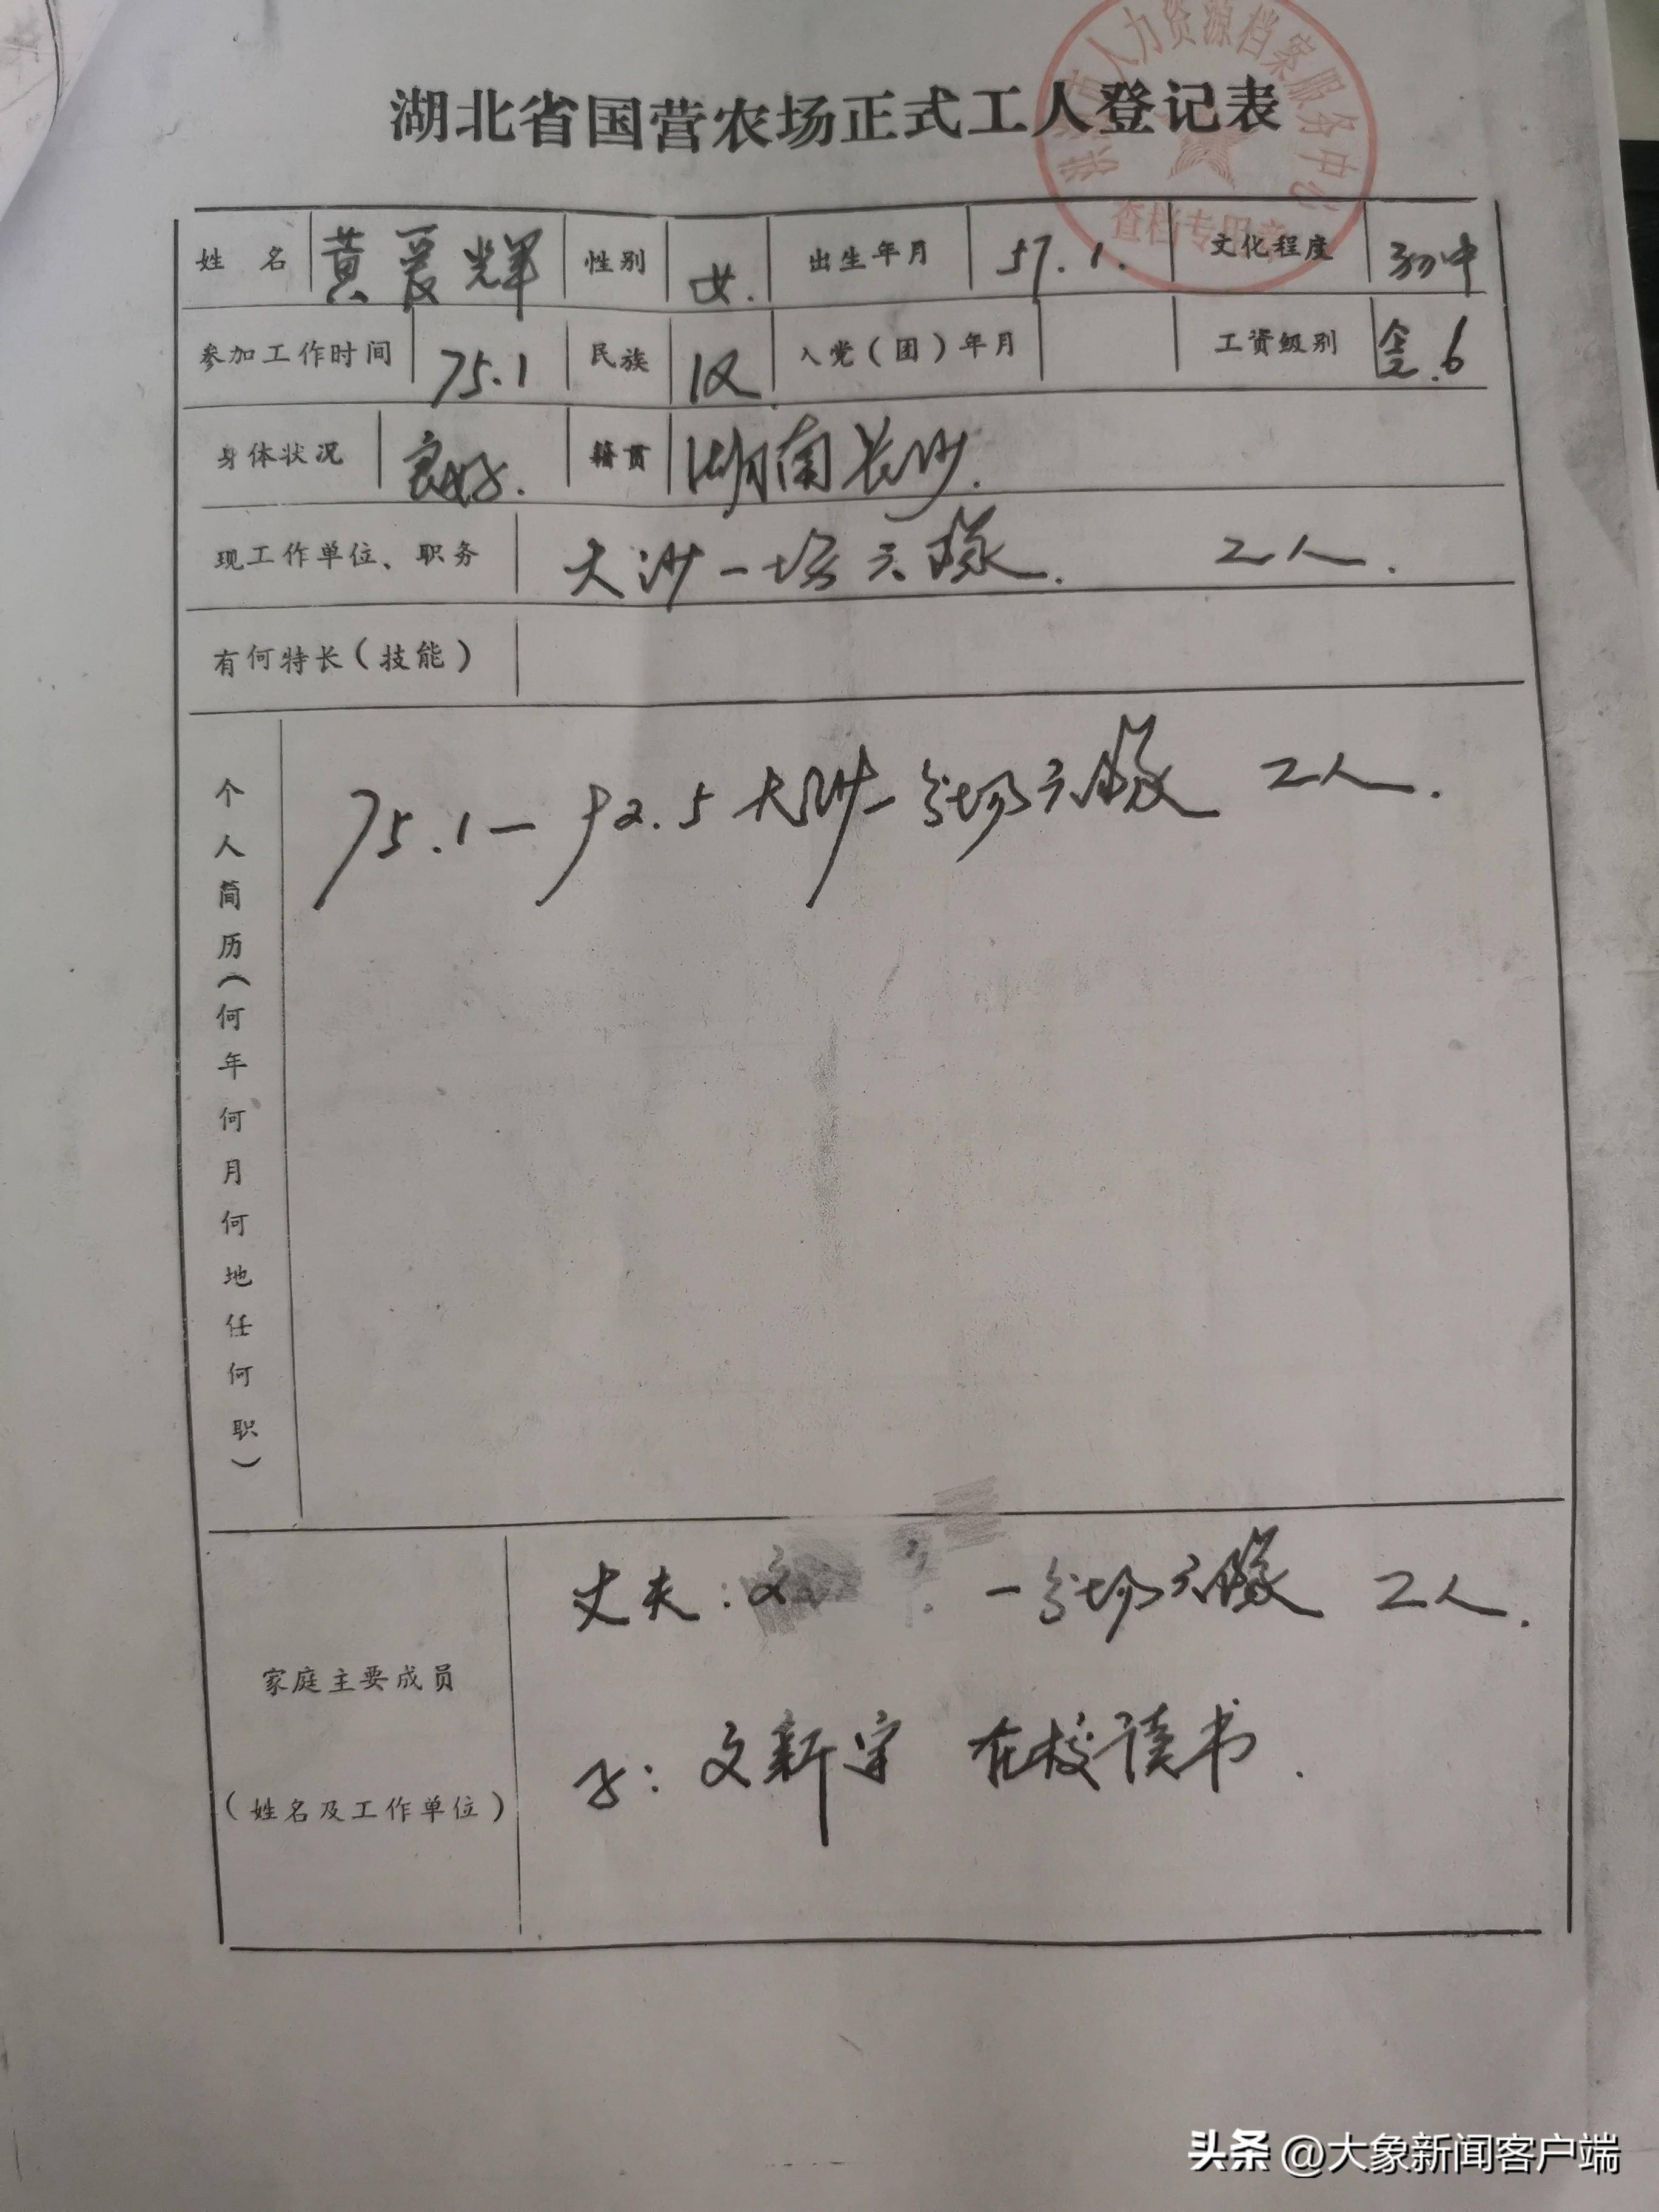 湖北省国营农场正式工人登记表
人力资源档案服务中心
查档专用章
姓 名 黄爱辉 性别 女. 出生年月 57.1. 文化程度 初中
参加工作时间 75.1 民族 汉 入党(团)年月 工资级别 6
身体状况 良好. 籍贯 湖南长沙.
现工作单位、职务 大沙一场六队. 工人.
有何特长(技能)
个人简历(何年何月何地任何职)
75.1—92.5 大沙一分场六队 工人.
家庭主要成员
(姓名及工作单位)
丈夫: 文 一分场六队 工人.
子: 文新宇 在校读书.
头条 @大象新闻客户端